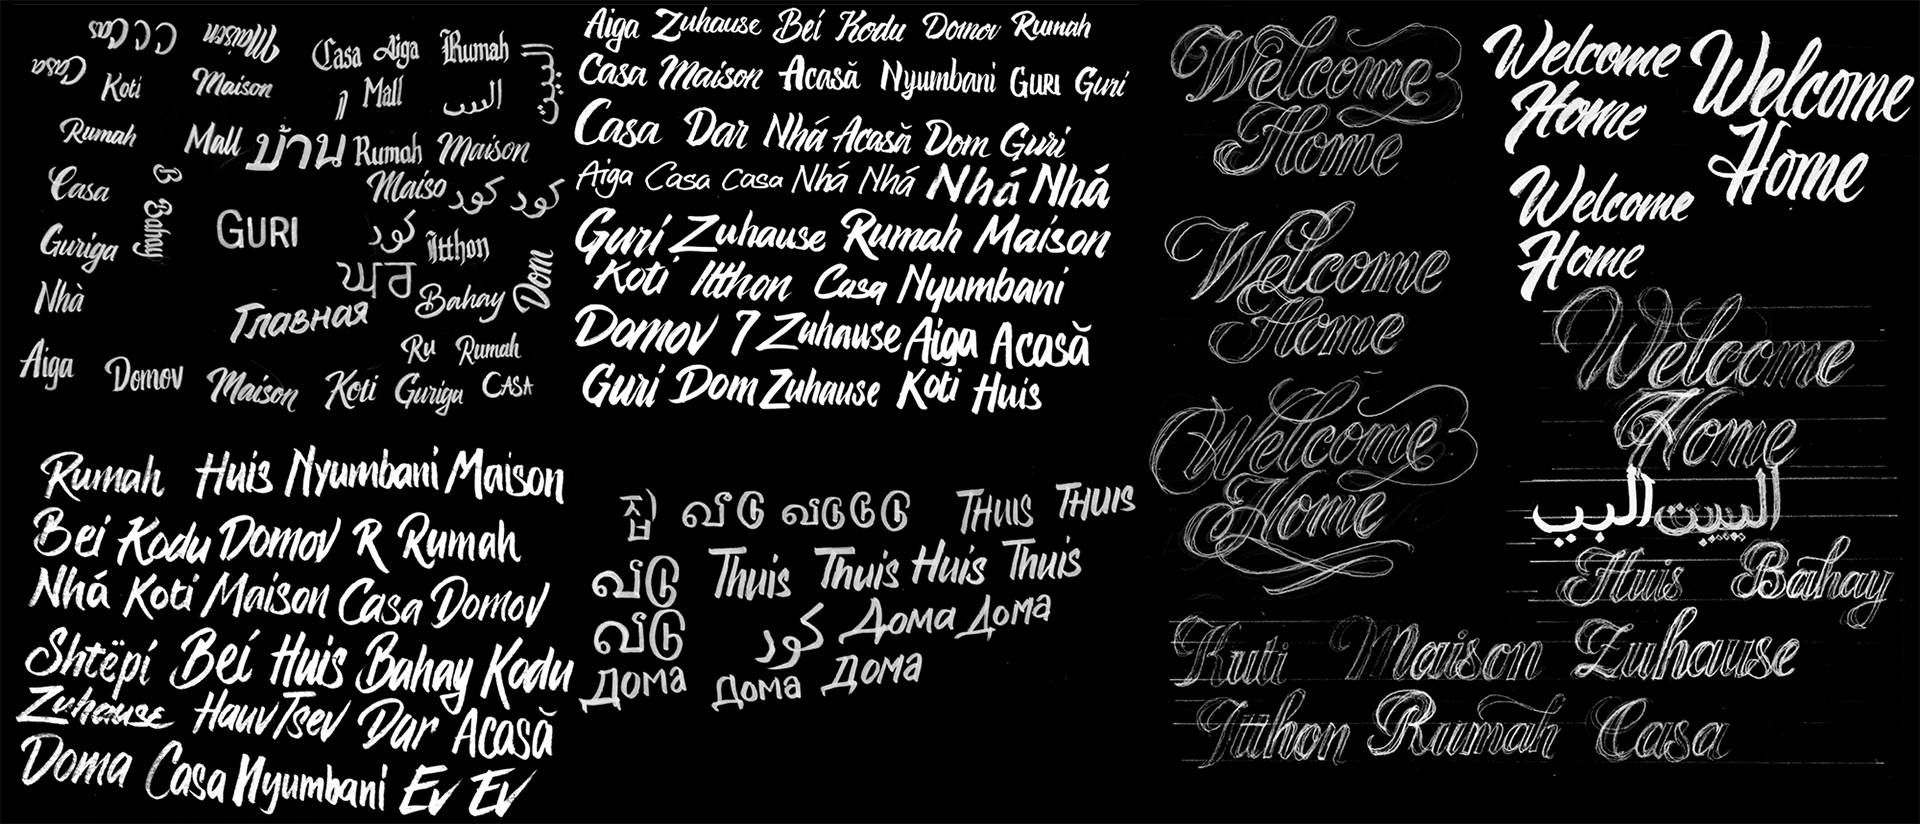 Casa Maison
Casa Aiga Rumah البيت
Casa Koti Maison Mall الس
Rumah Mall บ้าน Rumah Maison
Casa B Bahay Maiso کور کور
Guriga GURI کور Itthon
ਘਰ
Nhà Главная Bahay Dom
Aiga Domov Ru Rumah
Maison Koti Guriga CASA
Aiga Zuhause Bei Kodu Domov Rumah
Casa Maison Acasă Nyumbani GURI Guri
Casa Dar Nhá Acasă Dom Guri
Aiga Casa Casa Nhá Nhá Nhá Nhá
Guri Zuhause Rumah Maison
Koti Itthon Casa Nyumbani
Domov 7 Zuhause Aiga Acasă
Guri Dom Zuhause Koti Huis
Rumah Huis Nyumbani Maison
Bei Kodu Domov R Rumah
Nhá Koti Maison Casa Domov
Shtëpí Bei Huis Bahay Kodu
Zuhause Hauv Tsev Dar Acasă
Doma Casa Nyumbani Ev Ev
집 வீடு வீடுடுடு THUIS THUIS
வீடு Thuis Thuis Huis Thuis
வீடு کور Дома Дома
Дома Дома Дома
Welcome
Home
Welcome
Home
Welcome
Home
Welcome
Home
Welcome
Home
Welcome
Home
Welcome
Home
البيت
Huis Bahay
Kuti Maison Zuhause
Itthon Rumah Casa